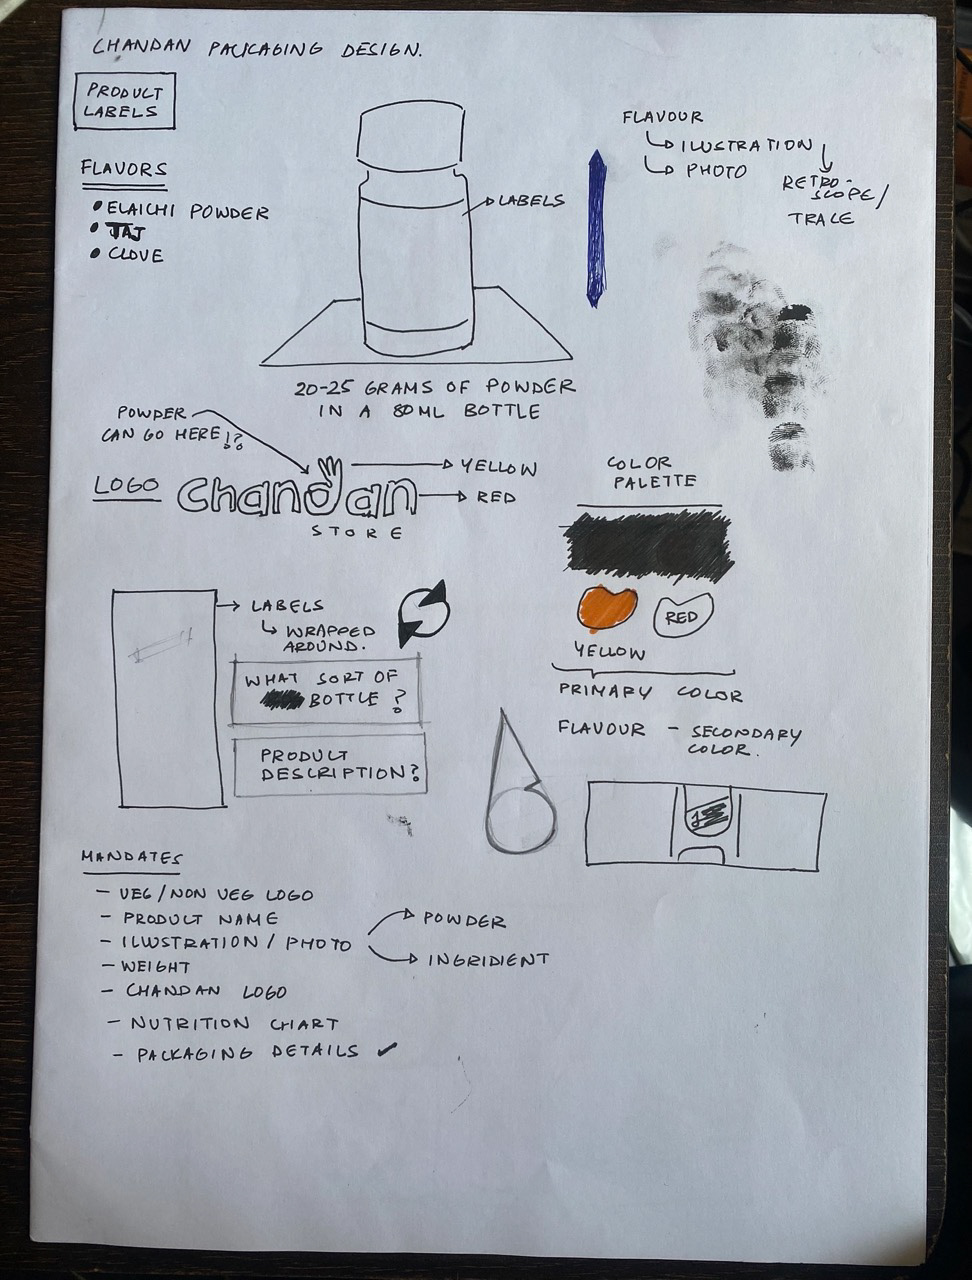 CHANDAN PACKAGING DESIGN.
PRODUCT
LABELS
FLAVORS
• ELAICHI POWDER
• TAJ
• CLOVE
LABELS
FLAVOUR
ILUSTRATION
PHOTO
RETRO-
SCOPE/
TRACE
20-25 GRAMS OF POWDER
IN A 80ML BOTTLE
POWDER
CAN GO HERE!?
LOGO
chandan
STORE
YELLOW
RED
COLOR
PALETTE
RED
YELLOW
PRIMARY COLOR
FLAVOUR - SECONDARY
COLOR.
LABELS
WRAPPED
AROUND.
WHAT SORT OF
BOTTLE?
PRODUCT
DESCRIPTION?
MANDATES
- VEG/NON VEG LOGO
- PRODUCT NAME
- ILUSTRATION / PHOTO
POWDER
INGRIDIENT
- WEIGHT
- CHANDAN LOGO
- NUTRITION CHART
- PACKAGING DETAILS ✓